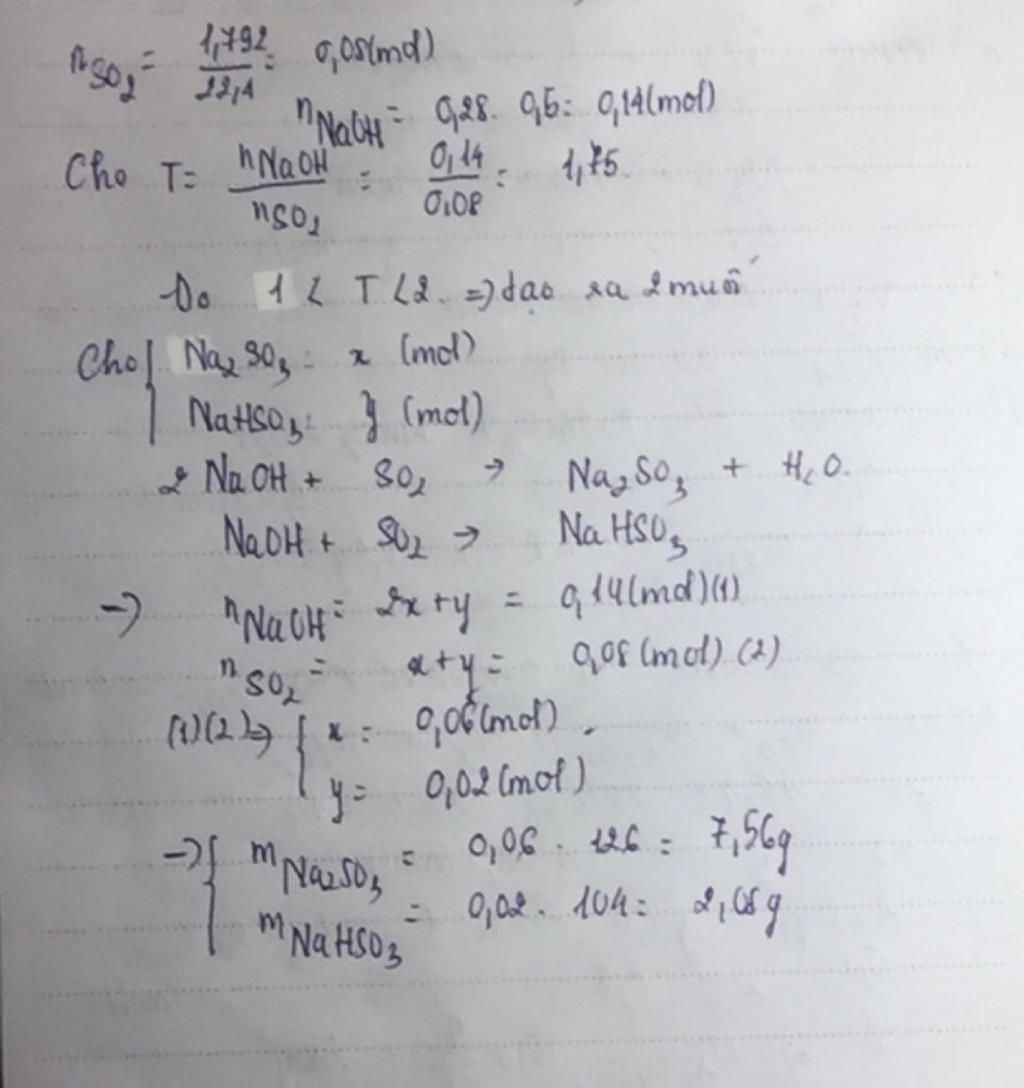 nSO2 = 1,792/22,4 = 0,08(mol)
nNaOH = 0,28. 0,5 = 0,14(mol)
Cho T = nNaOH/nSO2 = 0,14/0,08 = 1,75.
Do 1 < T < 2 => dạo ra 2 muối
Cho { Na2SO3 : x (mol)
NaHSO3 : y (mol)
2 NaOH + SO2 → Na2SO3 + H2O.
NaOH + SO2 → NaHSO3
→ nNaOH = 2x + y = 0,14(mol)(1)
nSO2 = x + y = 0,08 (mol) (2)
(1)(2) => { x = 0,06(mol)
y = 0,02(mol)
→ { mNa2SO3 = 0,06 . 126 = 7,56g
mNaHSO3 = 0,02 . 104 = 2,08g